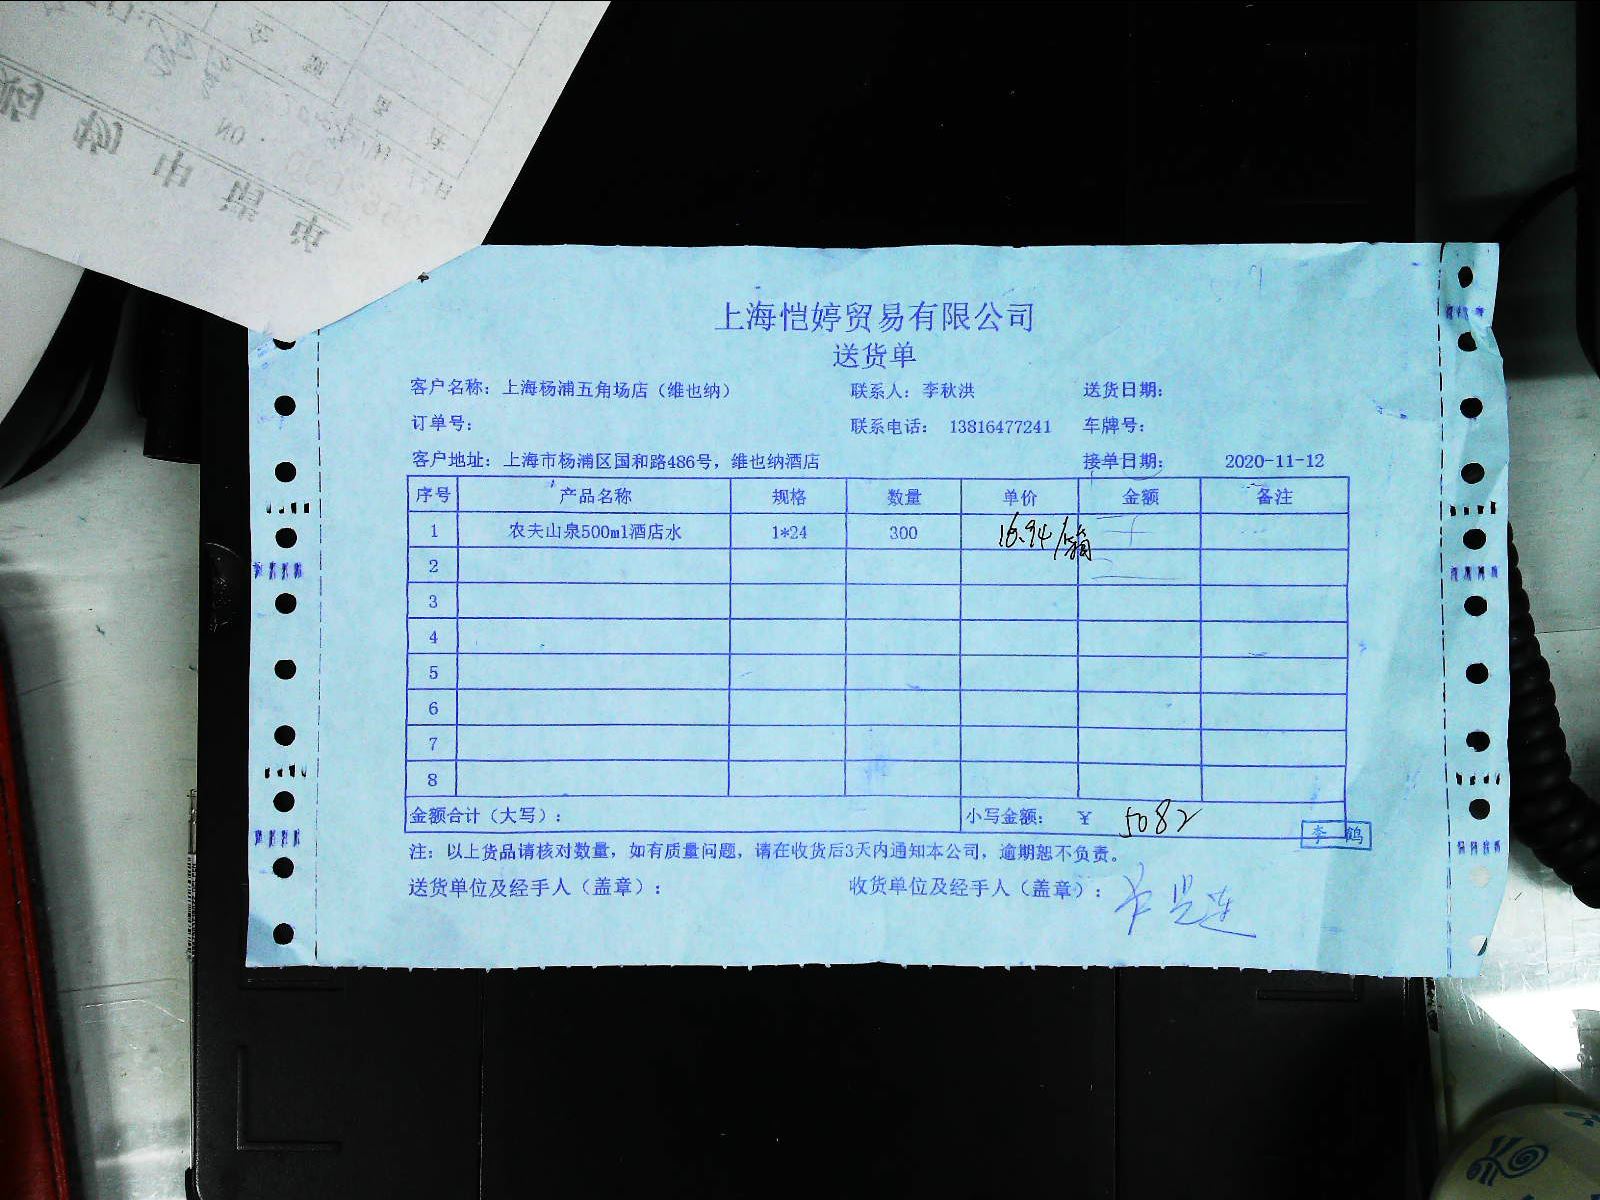 上海恺婷贸易有限公司
送货单
客户名称：上海杨浦五角场店（维也纳） 联系人：李秋洪 送货日期：
订单号： 联系电话： 13816477241 车牌号：
客户地址：上海市杨浦区国和路486号，维也纳酒店 接单日期： 2020-11-12
序号 产品名称 规格 数量 单价 金额 备注
1 农夫山泉500ml酒店水 1*24 300 16.94/箱
2
3
4
5
6
7
8
金额合计（大写）： 小写金额： ¥ 5082
李 鹤
注：以上货品请核对数量，如有质量问题，请在收货后3天内通知本公司，逾期恕不负责。
送货单位及经手人（盖章）： 收货单位及经手人（盖章）：